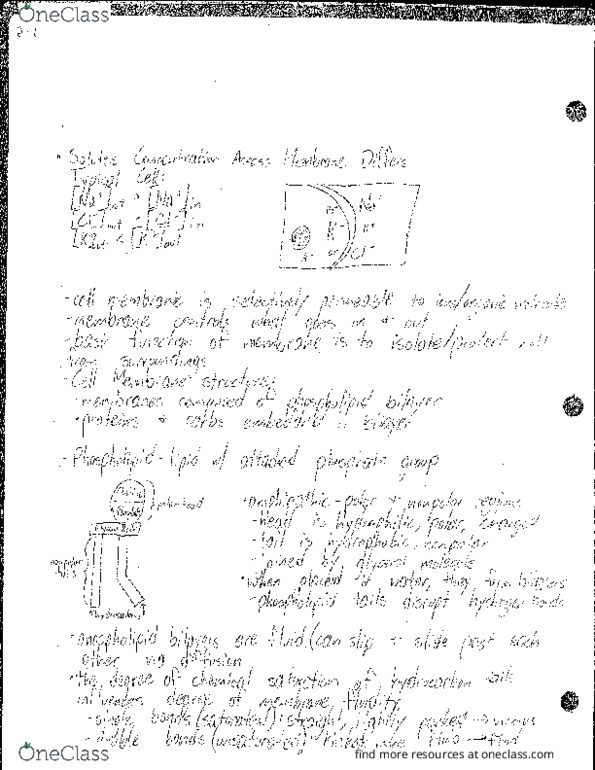 OneClass
• Solutes Concentration Across Membrane Differs
Typical Cell:
[Na+]out [Na+]in
[Cl-]out [Cl-]in
[K+]out < [K+]in
Na+
K+ K+
Cl-
-cell membrane is selectively permeable to
-membrane controls what goes in + out
-basic function of membrane is to isolate/protect cell
from surroundings
-Cell Membrane structures
-membranes composed of phospholipid bilayer
-proteins + carbs embedded in bilayer
-Phospholipid-lipid w/ attached phosphate group
polar head
nonpolar
tails
-amphipathic-polar + nonpolar regions
-head is hydrophilic, polar, charged
-tail is hydrophobic, nonpolar
-joined by glycerol molecule
-when placed in water, they form bilayers
-phospholipid tails disrupt hydrogen bonds
-phospholipid bilayers are fluid (can slip + slide past each
other via diffusion
-the degree of chemical saturation of hydrocarbon tails
influences degree of membrane fluidity
-single bonds (saturated) straight, tightly packed → viscous
-double bonds (unsaturated) → fluid
OneClass
find more resources at oneclass.com